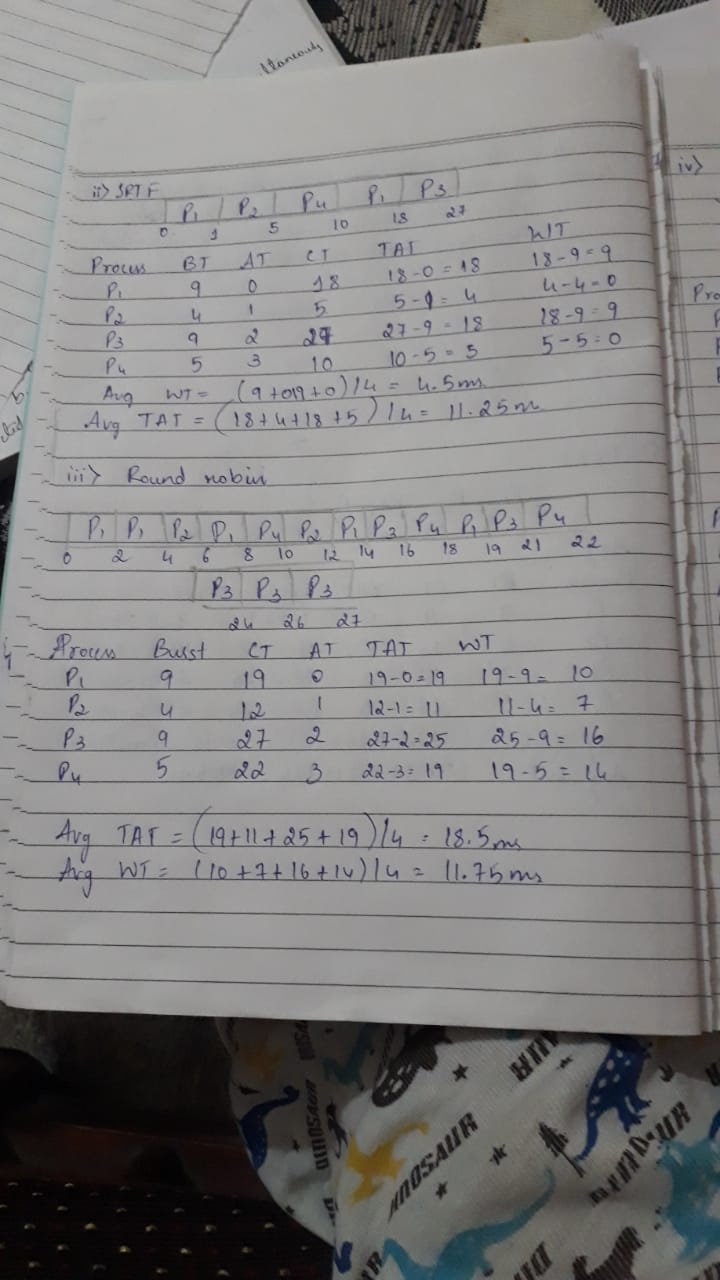 ltaneously
ii> SRTF
P1 P2 P4 P1 P3
0 1 5 10 18 27
Process BT AT CT TAT WT
P1 9 0 18 18-0=18 18-9=9
P2 4 1 5 5-1=4 4-4=0
P3 9 2 27 27-9=18 18-9=9
P4 5 3 10 10-5=5 5-5=0
Avg WT = (9+0+9+0)/4 = 4.5ms
Avg TAT = (18+4+18+5)/4 = 11.25m
iii> Round robin
P1 P1 P2 P1 P4 P2 P1 P3 P4 P1 P3 P4
0 2 4 6 8 10 12 14 16 18 19 21 22
P3 P3 P3
24 26 27
Process Busst CT AT TAT WT
P1 9 19 0 19-0=19 19-9= 10
P2 4 12 1 12-1=11 11-4= 7
P3 9 27 2 27-2=25 25-9= 16
P4 5 22 3 22-3=19 19-5 = 14
Avg TAT = (19+11+25+19)/4 = 18.5ms
Avg WT = (10+7+16+14)/4 = 11.75ms
iv>
Pro
DINOSAUR
DINOSAUR